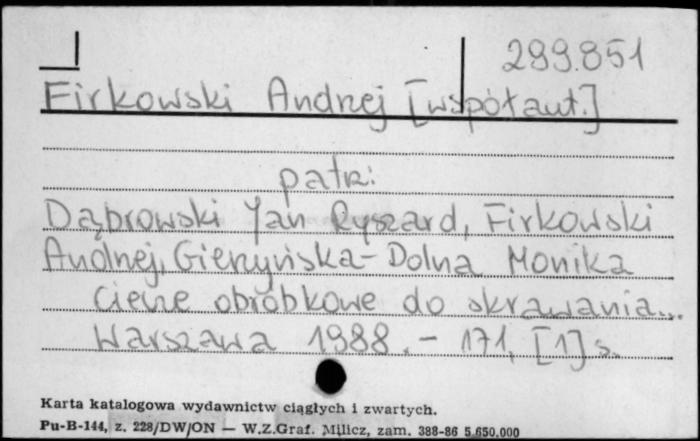 299.851
Firkowski Andrzej [współaut.]
patrz:
Dąbrowski Jan Ryszard, Firkowski
Andrzej, Gierzyńska-Dolna Monika
Ciecze obróbkowe do skrawania...
Warszawa 1988. - 171, [1] s.
Karta katalogowa wydawnictw ciągłych i zwartych.
Pu-B-144, z. 228/DW/ON — W.Z.Graf. Milicz, zam. 388-86 5.650.000